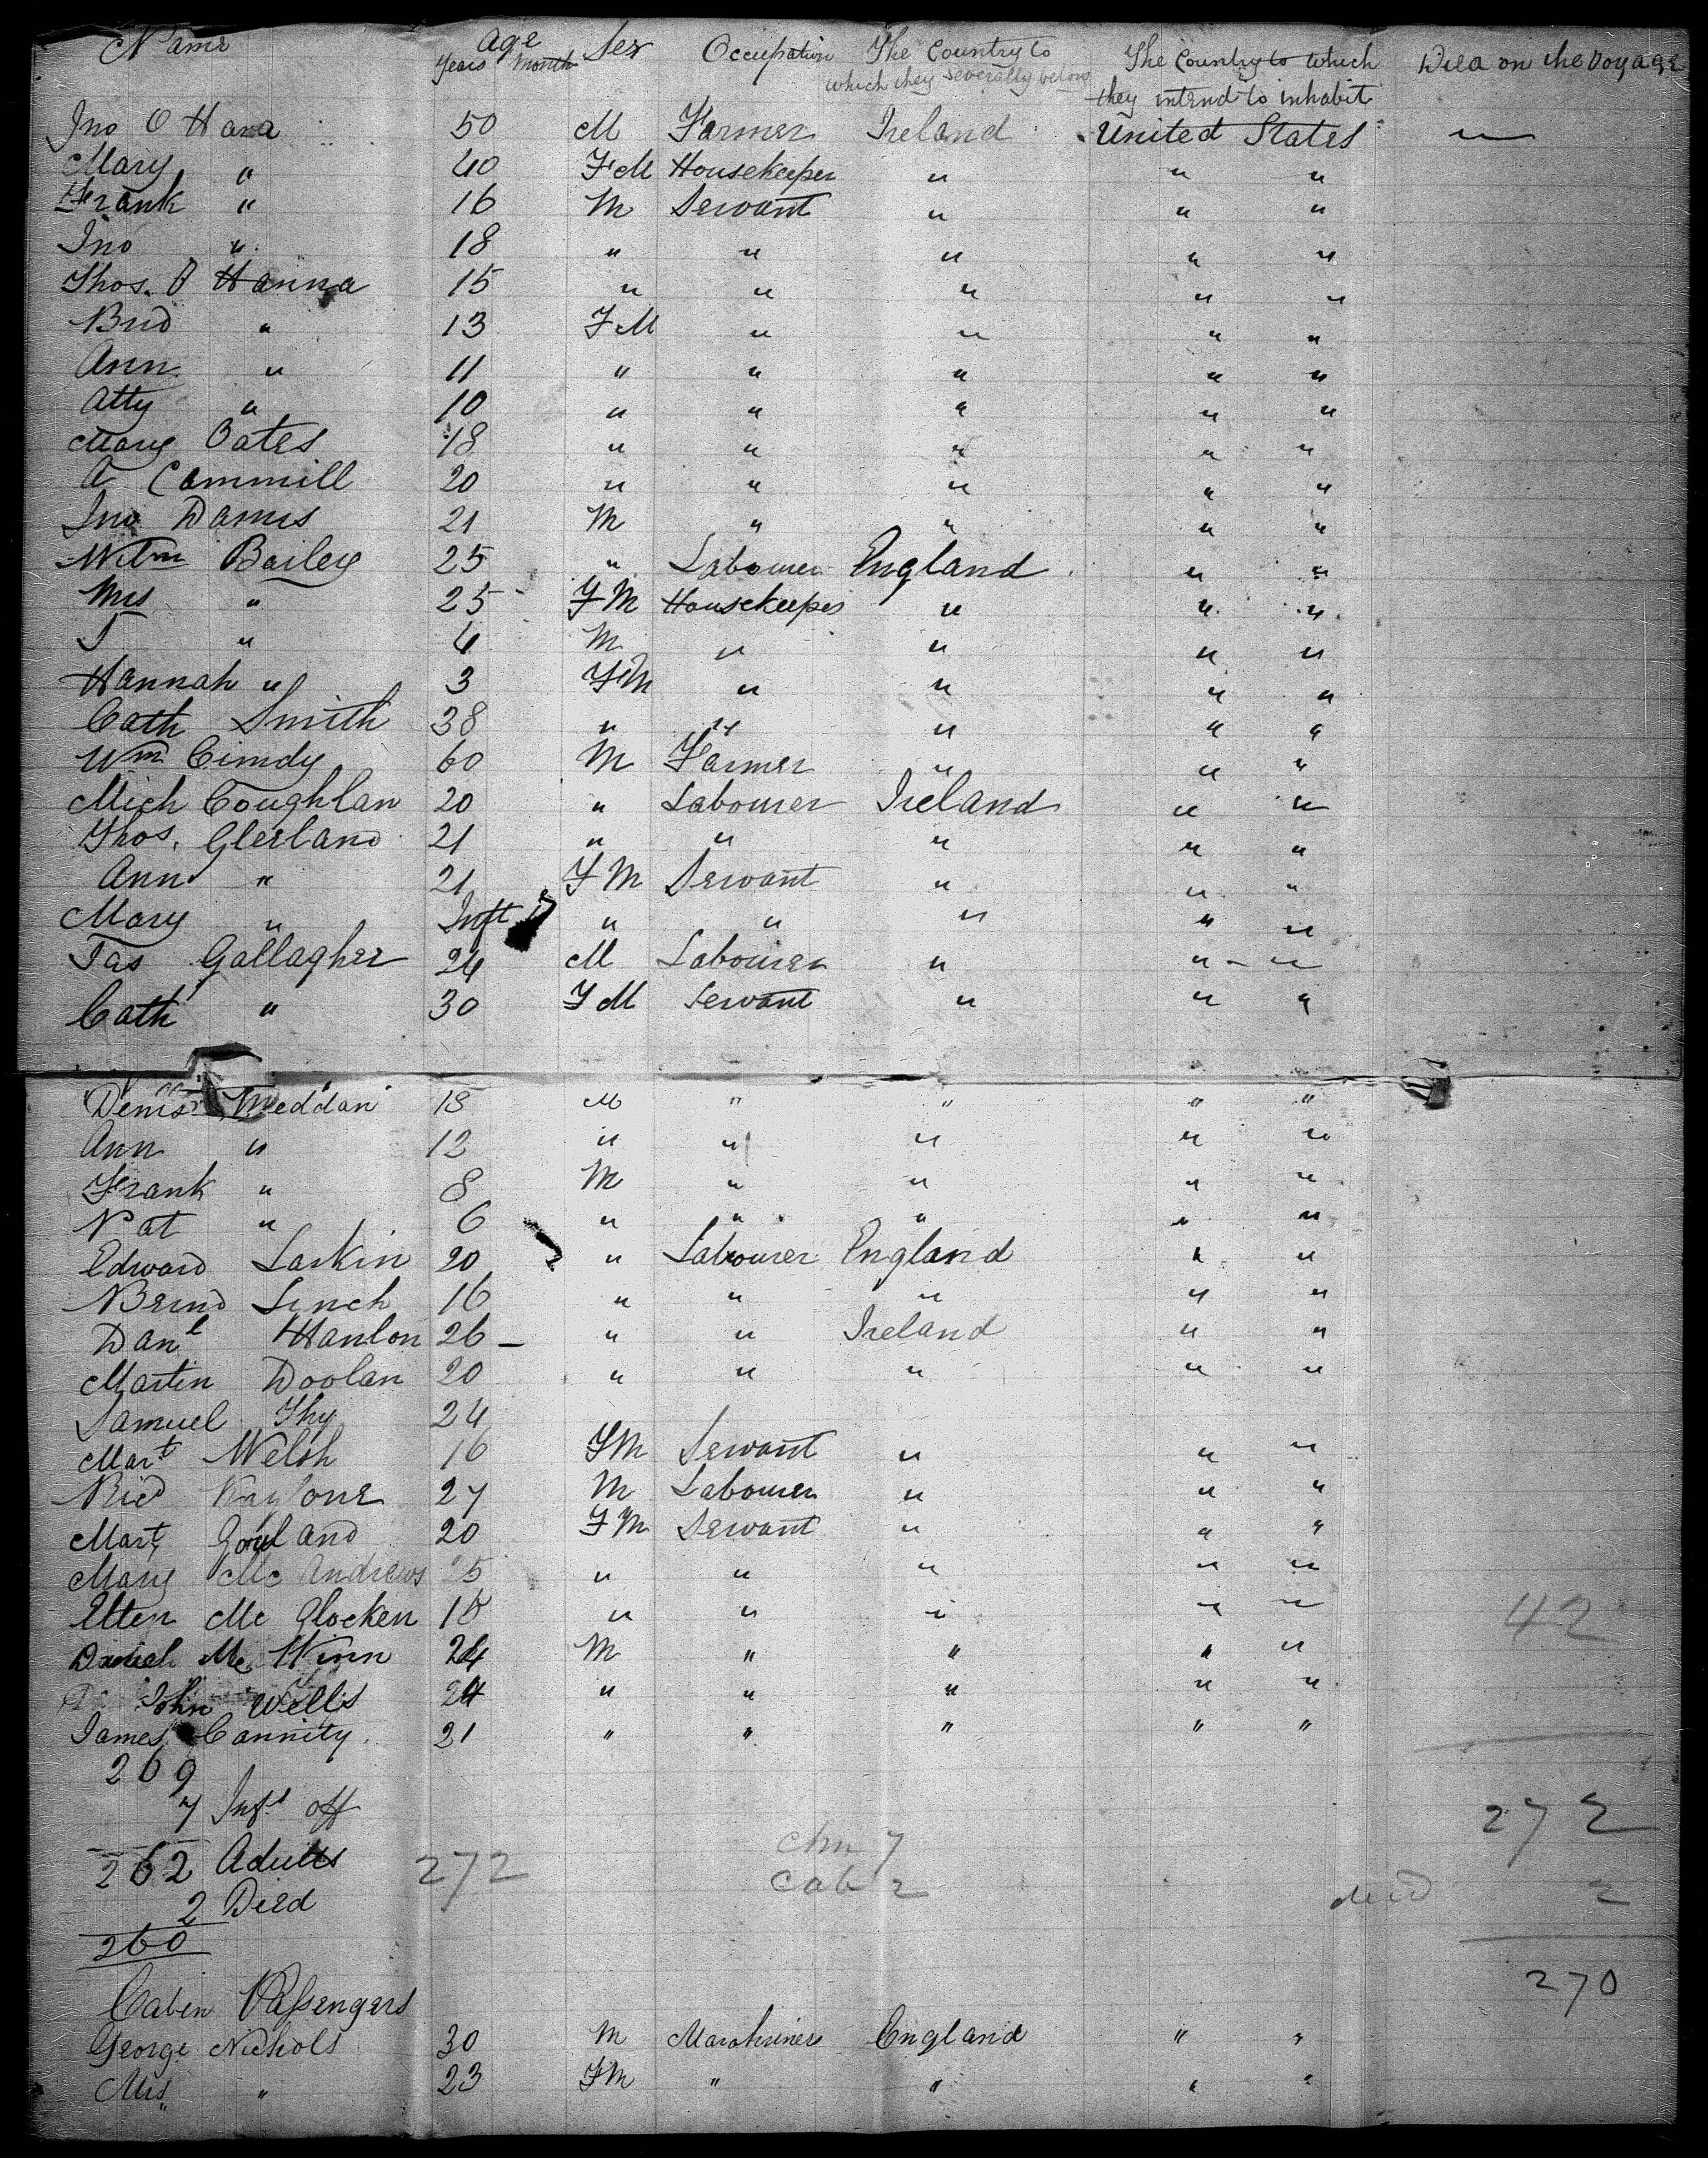 Name Age Sex Occupation The Country to The Country to which Died on the Voyage
Years Month which they severally belong they intend to inhabit
Jno O Hara 50 M Farmer Ireland United States —
Mary " 40 FM Housekeeper " " "
Frank " 16 M Servant " " "
Jno " 18 " " " " "
Thos. O Hanna 15 " " " " "
Brid " 13 FM " " " "
Ann " 11 " " " " "
Atty " 10 " " " " "
Mary Oates 18 " " " " "
A Cammill 20 " " " " "
Jno Damis 21 M " " " "
Wilm Bailey 25 " Labourer England " "
Mrs " 25 FM Housekeeper " " "
J " 4 M " " " "
Hannah " 3 FM " " " "
Cath Smith 38 " " " " "
Wm Cimdy 60 M Farmer " " "
Mich Coughlan 20 " Labourer Ireland " "
Thos. Glerland 21 " " " " "
Ann " 21 FM Servant " " "
Mary " Inft " " " " "
Jas Gallagher 24 M Labourer " " "
Cath " 30 FM Servant " " "
Denis Meddan 18 M " " " "
Ann " 12 " " " " "
Frank " 8 M " " " "
Pat " 6 " " " " "
Edward Larkin 20 " Labourer England " "
Linch 16 " " " " "
Danl Hanlon 26 — " " Ireland " "
Martin Doolan 20 " " " " "
Samuel 24
Mart Welsh 16 FM Servant " " "
27 M Labourer " " "
Mart 20 FM Servant " " "
Mary Mc Andrews 25 " " " " "
Ellen Mc Glocken 18 " " " " "
42
Mc Kinn 24 M " " " "
John Wells 24 " " " " "
James Cannity 21 " " " " "
269
7 Infs off 272
262 Adults 272 Chn 7
2 Died Cab 2 died 2
260
270
Cabin Passengers
George Nichols 30 M England " "
Mrs " 23 FM " " " "